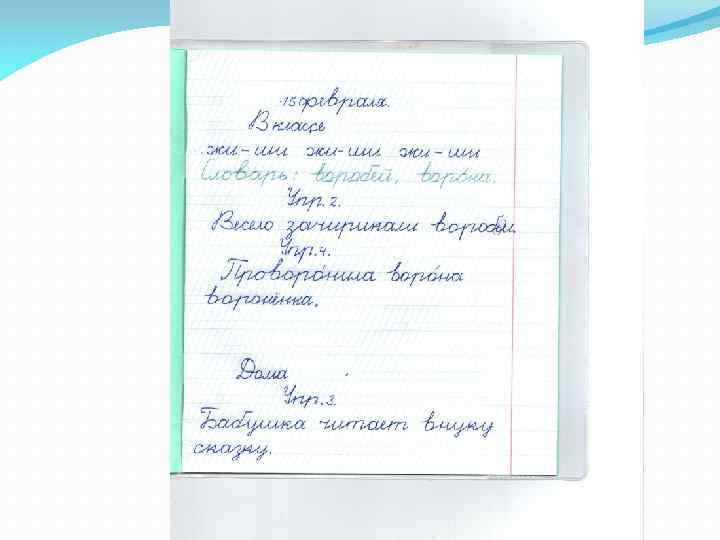 15 февраля.
В классе
жи-ши жи-ши жи-ши
Словарь: воробей, ворона.
Упр. 2.
Весело зачирикали воробьи.
Упр. 4.
Проворо́нила воро́на
воронёнка.
Дома
Упр. 3.
Бабушка читает внуку
сказку.